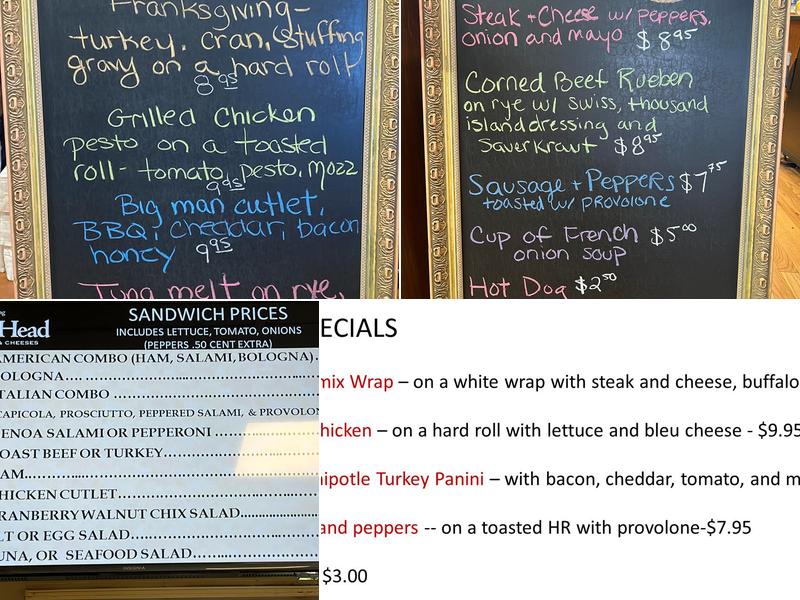 Franksgiving-
turkey. cran, stuffing
gravy on a hard roll
8 95
Grilled Chicken
pesto on a toasted
roll- tomato, pesto, mozz
9.95
Big man cutlet,
BBQ, cheddar, bacon
honey 9 95
Tuna melt on rye,
Steak + Cheese w/ peppers,
onion and mayo $8 95
Corned Beef Rueben
on rye w/ Swiss, thousand
island dressing and
Sauerkraut $8 95
Sausage + Peppers $7 75
toasted w/ provolone
Cup of French $5 00
onion soup
Hot Dog $2 50
Head
& CHEESES
SANDWICH PRICES
INCLUDES LETTUCE, TOMATO, ONIONS
(PEPPERS .50 CENT EXTRA)
AMERICAN COMBO (HAM, SALAMI, BOLOGNA).
OLOGNA.... ........................................
TALIAN COMBO ....................................
CAPICOLA, PROSCIUTTO, PEPPERED SALAMI, & PROVOLON
ENOA SALAMI OR PEPPERONI ..................
OAST BEEF OR TURKEY............................
AM...................................................
HICKEN CUTLET....................................
RANBERRY WALNUT CHIX SALAD................
LT OR EGG SALAD..................................
UNA, OR SEAFOOD SALAD........................
INSIGNIA
ECIALS
mix Wrap – on a white wrap with steak and cheese, buffalo
hicken – on a hard roll with lettuce and bleu cheese - $9.95
ipotle Turkey Panini – with bacon, cheddar, tomato, and m
and peppers -- on a toasted HR with provolone-$7.95
$3.00